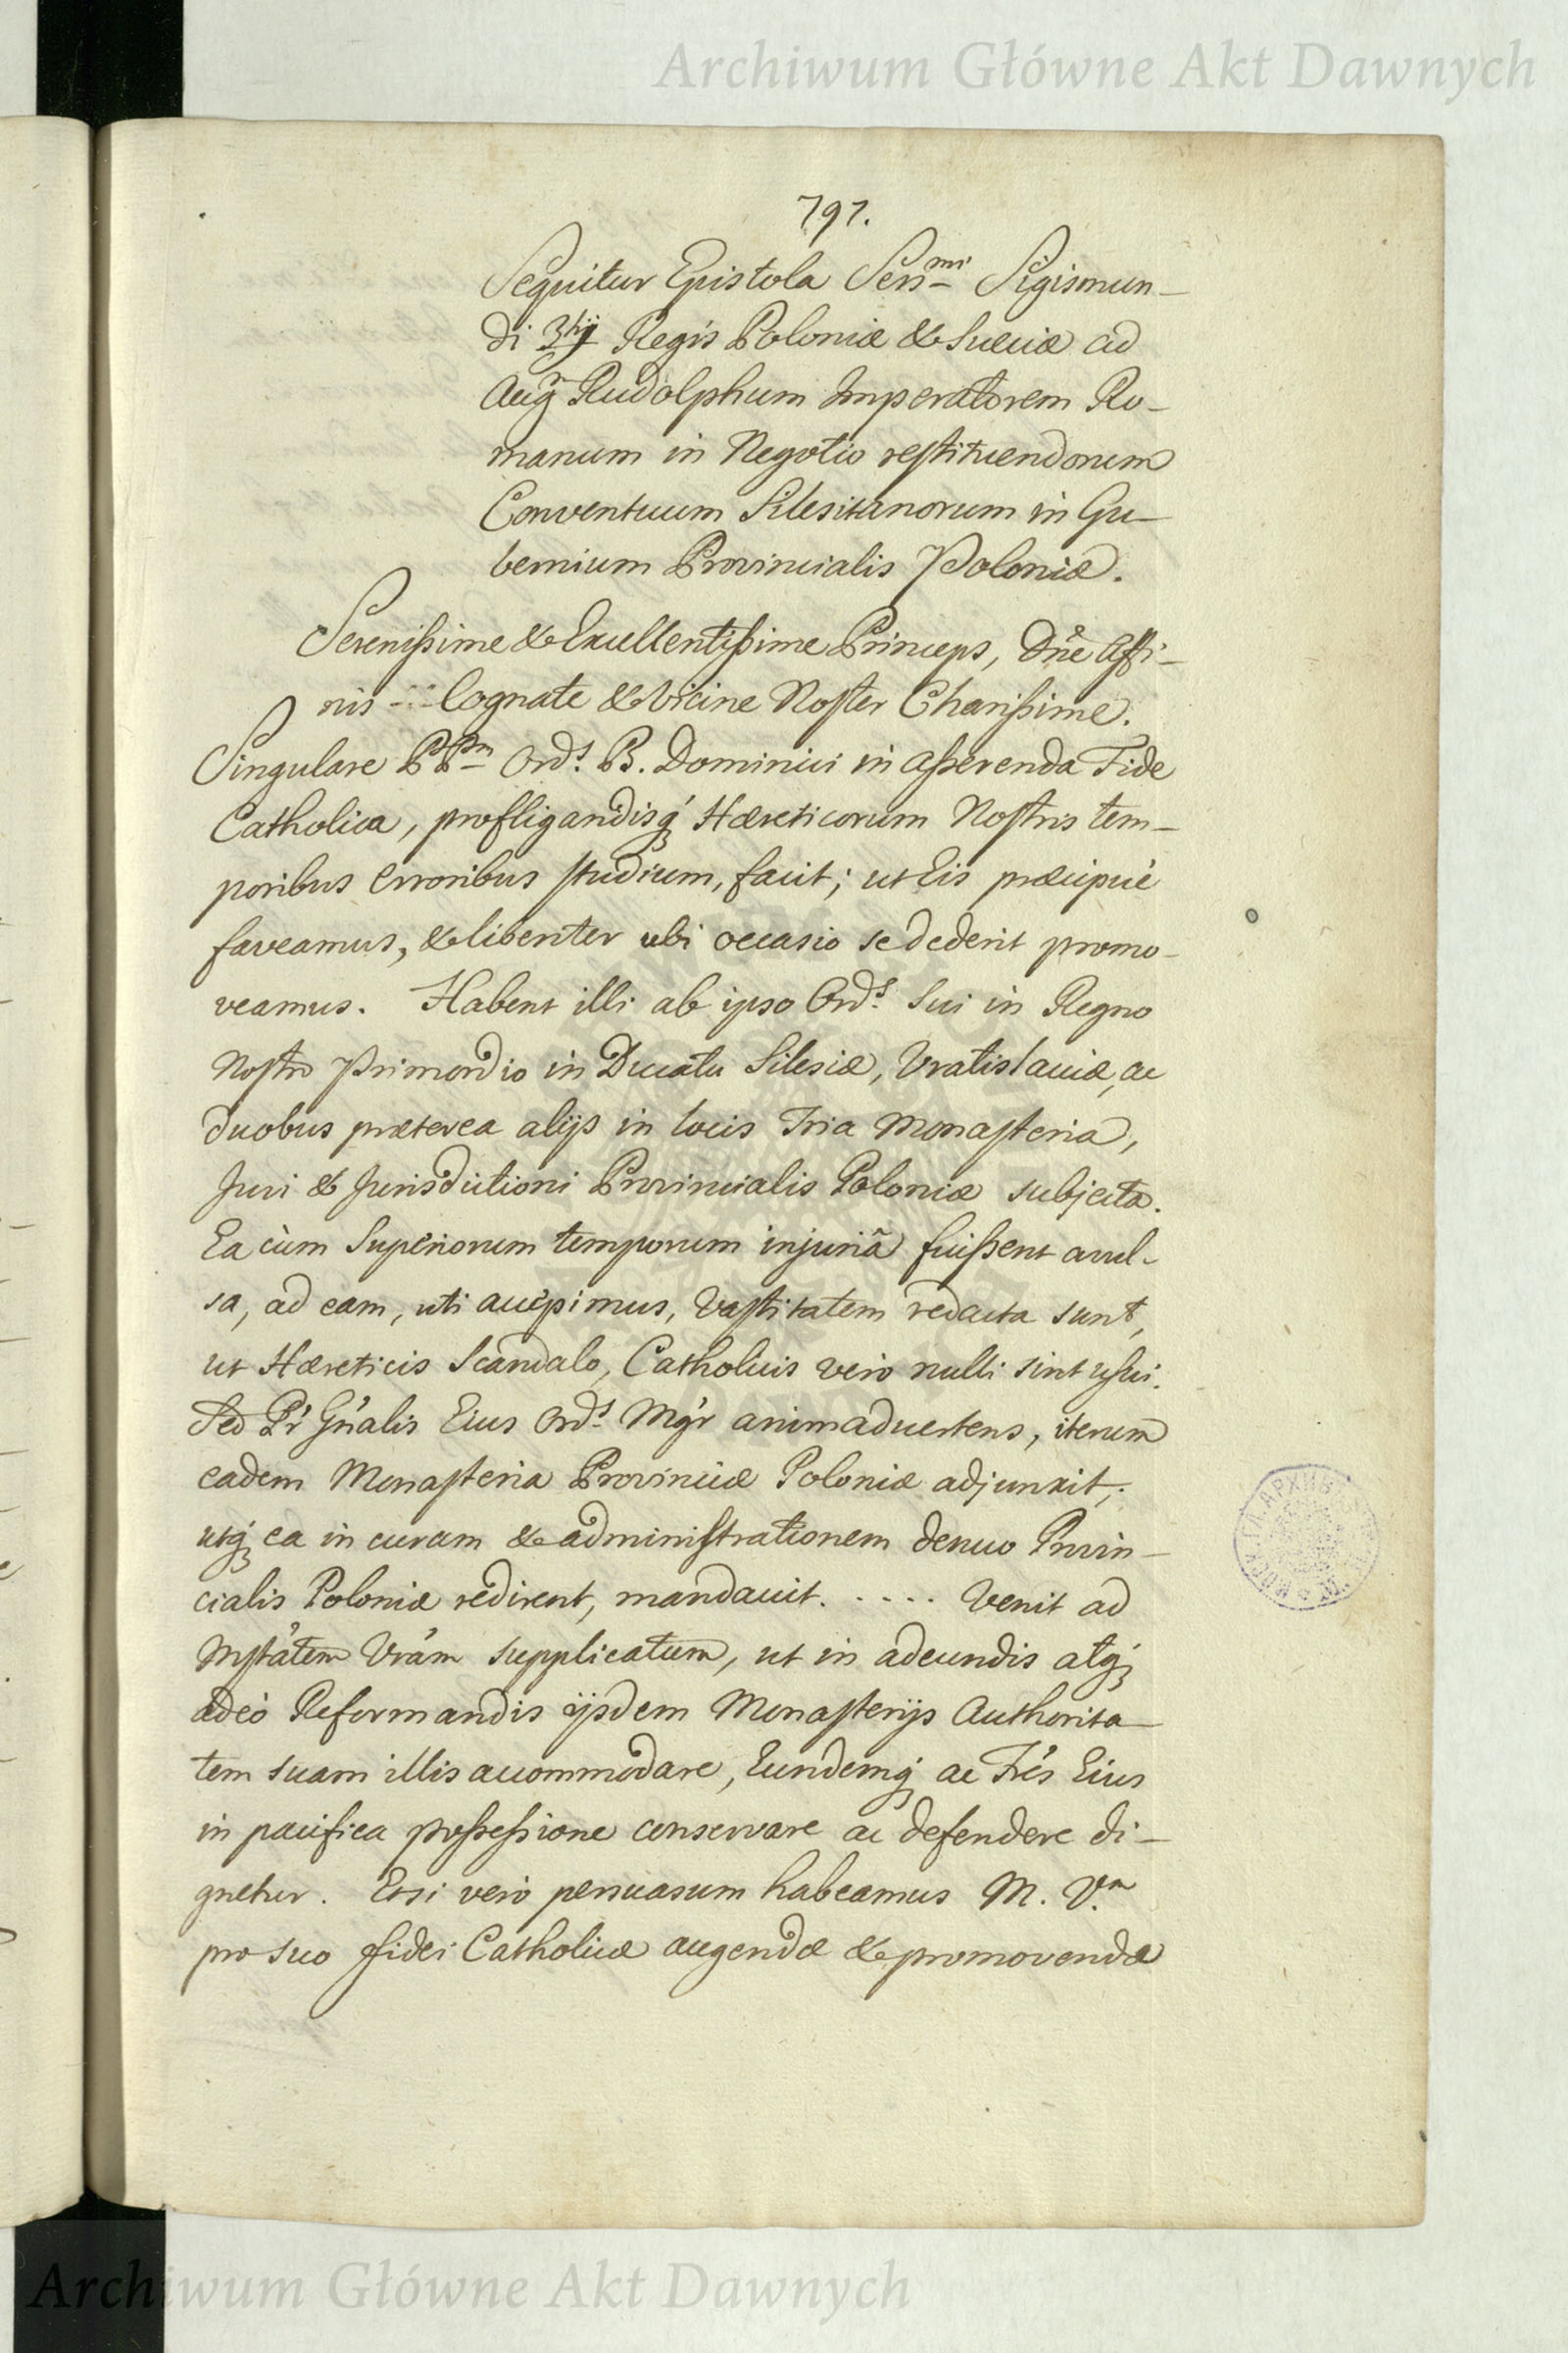 Archiwum Główne Akt Dawnych
797.
Sequitur Epistola Serssmi Sigismun-
di 3tij Regis Poloniæ & Sueciæ ad
Aug. Rudolphum Imperatorem Ro-
manum in Negotio restituendorum
Conventuum Silesitanorum in Gu-
bernium Provincialis Poloniæ.
Serenissime & Excellentissime Princeps, Dne Affi-
nis Cognate & Vicine Noster Charissime.
Singulare PPm Ords. B. Dominici in asserenda Fide
Catholica, profligandisq́; Hæreticorum Nostris tem-
poribus Erroribus studium, facit; ut Eis præcipuè
faveamus, & libenter ubi occasio se dederit promo-
veamus. Habent illi ab ipso Ords. Sui in Regno
Nostro Primordio in Ducatu Silesiæ, Vratislaviæ, ac
duobus præterea alijs in locis Tria Monasteria,
Juri & Jurisdictioni Provincialis Poloniæ subjecta.
Ea cùm Superiorum temporum injuriâ fuissent avul-
sa, ad eam, uti accepimus, Vastitatem redacta sunt,
ut Hæreticis Scandalo, Catholicis vero nulli sint usui.
Sed Pr Gnalis Eius Ords. Mgr animadvertens, iterum
eadem Monasteria Provinciæ Poloniæ adjunxit;
utq́; ea in curam & administrationem denuo Provin-
cialis Poloniæ redirent, mandavit. . . . . Venit ad
Mstátem Vrám supplicatum, ut in adeundis atq́;
adeò Reformandis ijsdem Monasterijs Authorita-
tem suam illis accommodare, Eundemq́; ac Frés Eius
in pacifica possessione conservare ac defendere di-
gnetur. Etsi vero persuasum habeamus M. Vm
pro suo fidei Catholicæ augendæ & promovendæ
Archiwum Główne Akt Dawnych